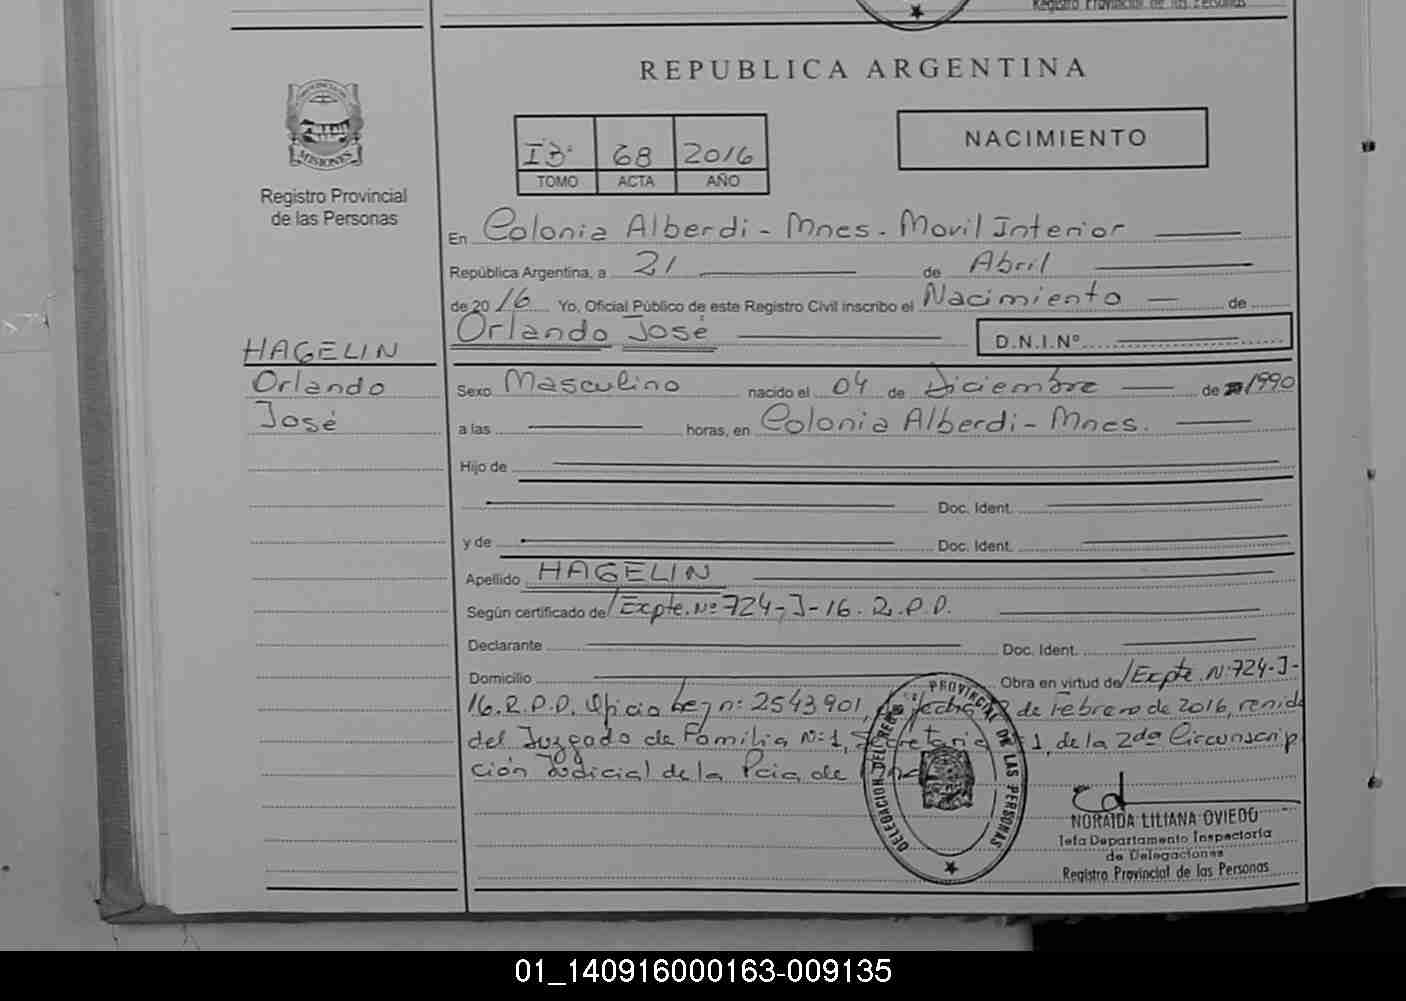 Registro Provincial de las Personas
REPUBLICA ARGENTINA
PROVINCIA DE
MISIONES
Registro Provincial
de las Personas
Iº 68 2016
TOMO ACTA AÑO
NACIMIENTO
En Colonia Alberdi - Mnes. Movil Interior
República Argentina, a 21 de Abril
de 2016 Yo, Oficial Público de este Registro Civil inscribo el Nacimiento de
Orlando José D.N.I.Nº
HAGELIN
Orlando
José
Sexo Masculino nacido el 04 de Diciembre de 1990
a las horas, en Colonia Alberdi - Mnes.
Hijo de
Doc. Ident.
y de Doc. Ident.
Apellido HAGELIN
Según certificado de/Expte. Nº 724-J-16. R.P.P.
Declarante Doc. Ident.
Domicilio Obra en virtud de/Expte. Nº 724-J-
16. R.P.P. Oficio Ley nº 2543901, de fecha de Febrero de 2016, venido
del Juzgado de Familia Nº 1, Secretaria 1, de la 2da Circunscrip
ción Judicial de la Pcia de
DELEGACION DEL REG. PROVINCIAL DE LAS PERSONAS
NORAIDA LILIANA OVIEDO
Jefa Departamento Inspectoria
de Delegaciones
Registro Provincial de las Personas
01_140916000163-009135